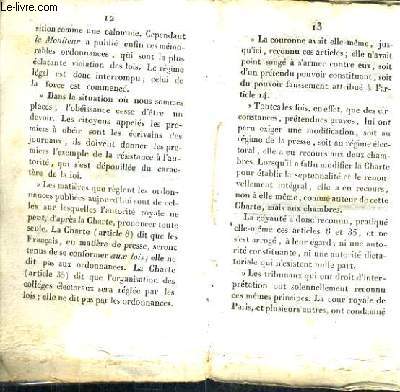 12
sition comme une calomnie. Cependant
le Moniteur a publié enfin ces mémo-
rables ordonnances, qui sont la plus
éclatante violation des lois. Le régime
légal est donc interrompu; celui de
la force est commencé.
» Dans la situation où nous sommes
placés, l'obéissance cesse d'être un
devoir. Les citoyens appelés les pre-
miers à obéir sont les écrivains des
journaux, ils doivent donner les pre-
miers l'exemple de la résistance à l'au-
torité, qui s'est dépouillée du carac-
tère de la loi.
» Les matières que règlent les ordon-
nances publiées aujourd'hui sont de cel-
les sur lesquelles l'autorité royale ne
peut, d'après la Charte, prononcer toute
seule. La Charte (article 8) dit que les
Français, en matière de presse, seront
tenus de se conformer aux lois; elle ne
dit pas aux ordonnances. La Charte
(article 35) dit que l'organisation des
colléges électoraux sera réglée par les
lois; elle ne dit pas par les ordonnances.
13
» La couronne avait elle-même, jus-
qu'ici, reconnu ces articles; elle n'avait
point songé à s'armer contre eux, soit
d'un prétendu pouvoir constituant, soit
du pouvoir faussement attribué à l'ar-
ticle 14.
» Toutes les fois, en effet, que des cir-
constances, prétendues graves, lui ont
paru exiger une modification, soit au
régime de la presse, soit au régime élec-
toral, elle a eu recours aux deux cham-
bres. Lorsqu'il a fallu modifier la Charte
pour établir la septennalité et le renou-
vellement intégral, elle a eu recours,
non à elle-même, comme auteur de cette
Charte, mais aux chambres.
La royauté a donc reconnu, pratiqué
elle-même ces articles 8 et 35, et ne
s'est arrogé, à leur égard, ni une auto-
rité constituante, ni une autorité dicta-
toriale qui n'existent nulle part.
» Les tribunaux qui ont droit d'inter-
prétation ont solennellement reconnu
ces mêmes principes. La cour royale de
Paris, et plusieurs autres, ont condamné
www.le-livre.com